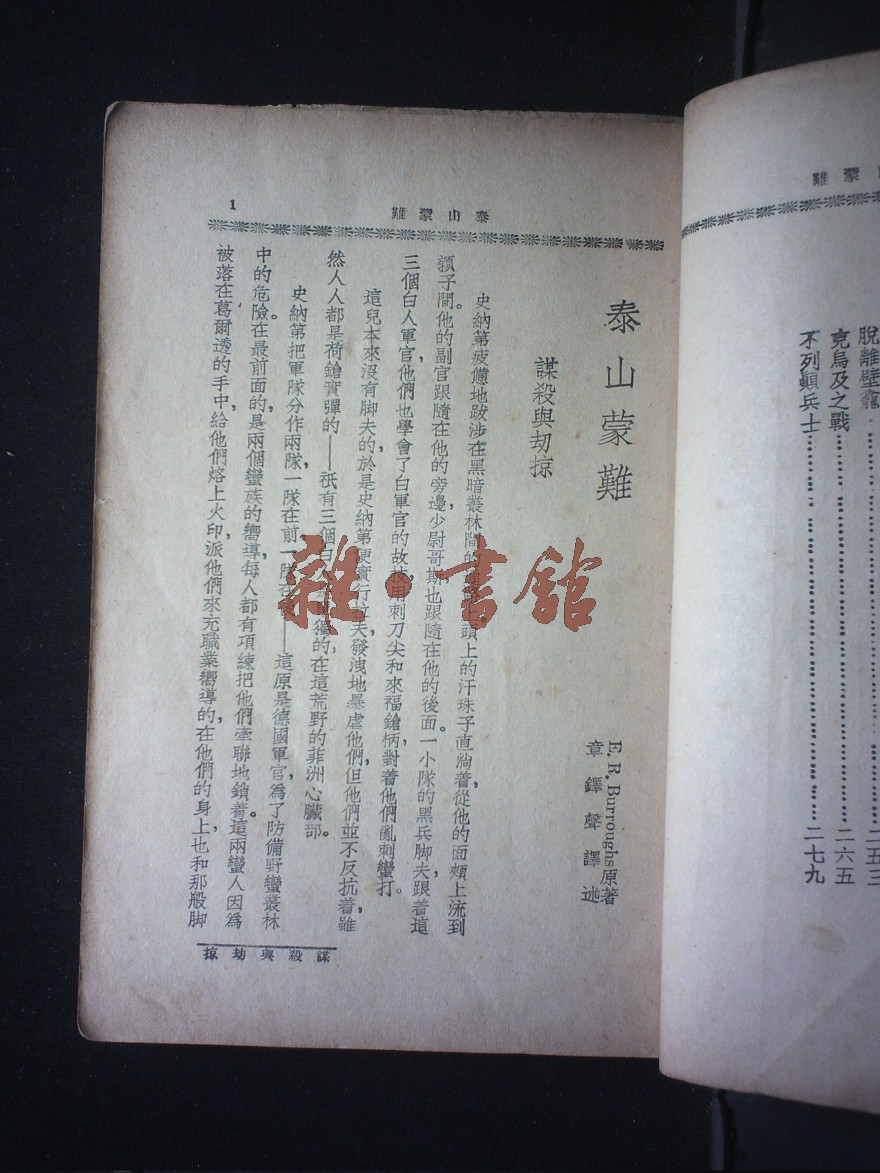 難蒙山泰
1
泰山蒙難
E. R. Burroughs原著
章鐸聲譯述
謀殺與刧掠
史納第疲憊地跋涉在黑暗叢林間的頭上的汗珠子直淌着，從他的面頰上流到
頸子間。他的副官跟隨在他的旁邊，少尉哥斯也跟隨在他的後面。一小隊的黑兵脚夫跟着這
三個白人軍官，他們也學會了白軍官的故技，用刺刀尖和來福鎗柄，對着他們亂刺蠻打。
這兒本來沒有脚夫的，於是史納第便實行拉夫，發洩地暴虐他們，但他們並不反抗着，雖
然人人都是荷鎗實彈的——祇有三個白人的在這荒野的菲洲心臟部。
史納第把軍隊分作兩隊，一隊在前，一隊在後——這原是德國軍官爲了防備野蠻叢林
中的危險。在最前面的，是兩個蠻族的嚮導，每人都有項練把他們牽聯地鎖着。這兩蠻人因爲
被落在葛爾透的手中，給他們烙上火印，派他們來充職業嚮導的，在他們的身上，也和那般脚
謀殺與刧掠
雜·書館
蒙難
脫離壁龕……二五三
克烏及之戰……二六五
不列顛兵士……二七九